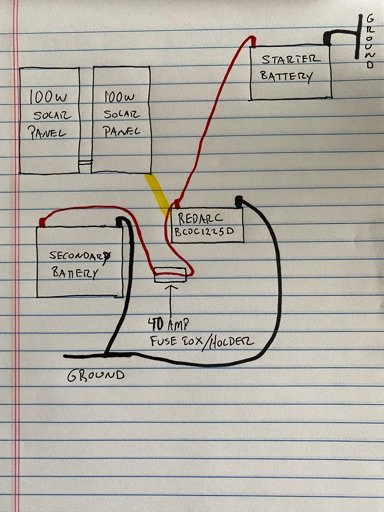 GROUND
STARTER
BATTERY
100W
SOLAR
PANEL
100W
SOLAR
PANEL
REDARC
BCDC1225D
SECONDARY
BATTERY
40 AMP
FUSE BOX/HOLDER
GROUND